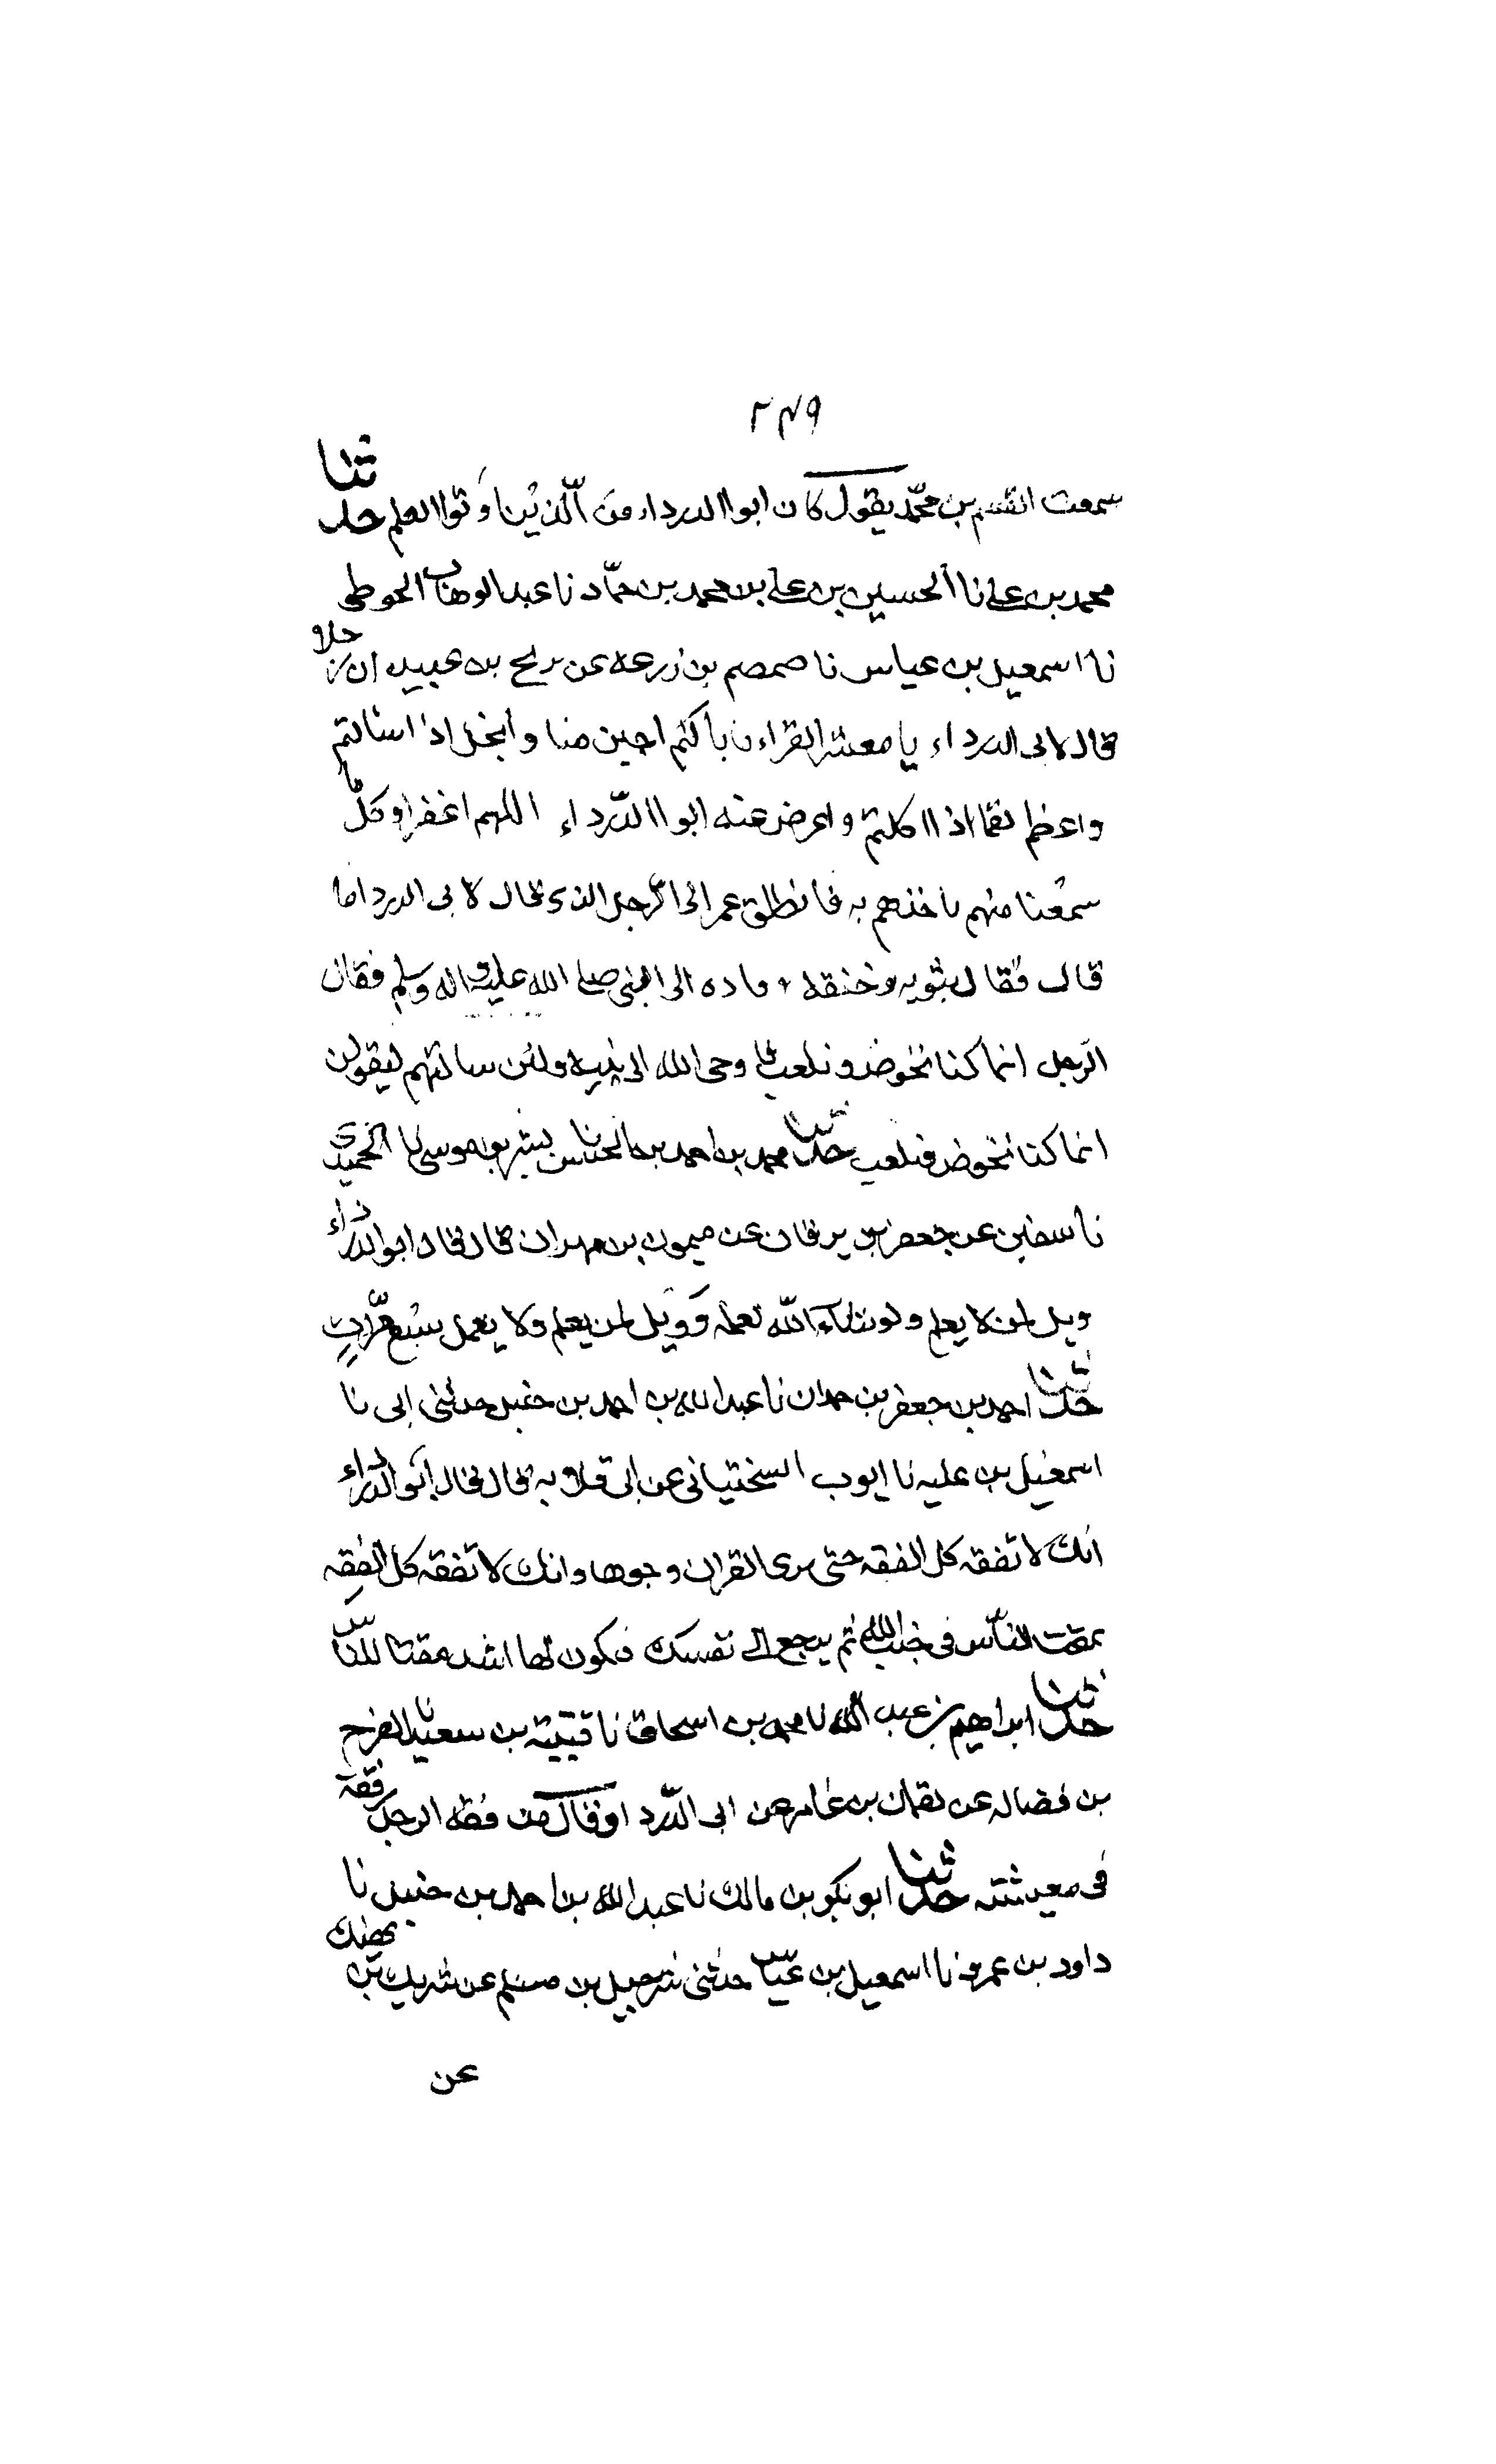 ٢٤٩
سمعت القسم بن محمّد يقول كان ابوا الدرداء من الّذين اوتوا العلم حدثنا
محمد بن علی نا الحسين بن علی بن محمد بن حمّاد نا عبد الوهاب الحوطی
نا اسمعيل بن عياش نا ضمضم بن زرعه عن شريح بن عبيد ان رجلا
قال لابی الدرداء يا معشر القراء ما بالكم اجبن منا وابخل اذا اسالتم
واعظم لقما اذا اكلتم واعرض عنه ابوا الدّرداء اللهم اغفر او كلّ ما
سمعنا منهم ناخذهم به فانطلق عمر الی الرّجل الذی قال لابی الدرداء ما
قال فقال بثوبه وخنقه وقاده الی النبی صلی الله عليه واله وسلم فقال
الرّجل انما كنا نخوض ونلعب فاوحی الله الی نبيه ولئن سالتهم ليقولن
انما كنا نخوض ونلعب حدثنا محمد بن احمد بن الحسن نا بشر بن موسی نا الحميدی
نا سفين عن جعفر بن برقان عن ميمون بن مهران قال قال ابو الدرداء
ويل لمن لا يعلم ولو شاء الله لعلمه وويل لمن يعلم ولا يعمل سبع مرّات
حدثنا احمد بن جعفر بن حمدان نا عبد الله بن احمد بن حنبل حدثنی ابی نا
اسمعيل بن عليه نا ايوب السختيانی عن ابی قلابه قال قال ابو الدرداء
انك لا تفقه كل الفقه حتی تری القران وجوها وانك لا تفقه كل الفقه
تمقت النّاس فی جنب الله ثم يرجع الی نفسك فيكون لها اشد مقتا للنّاس
حدثنا ابراهيم بن عبد الله نا محمد بن اسحاق نا قتيبة بن سعيد نا الفرج
بن فضاله عن لقمان بن عامر عن ابی الدّرداء وقال من فقه الرجل رفقه
فی معيشته حدثنا ابو بكر بن مالك نا عبد الله بن احمد بن حنبل نا
داود بن عمرو نا اسمعيل بن عيّاش حدثنی شرحبيل بن مسلم عن شريك بن نهيك
عن